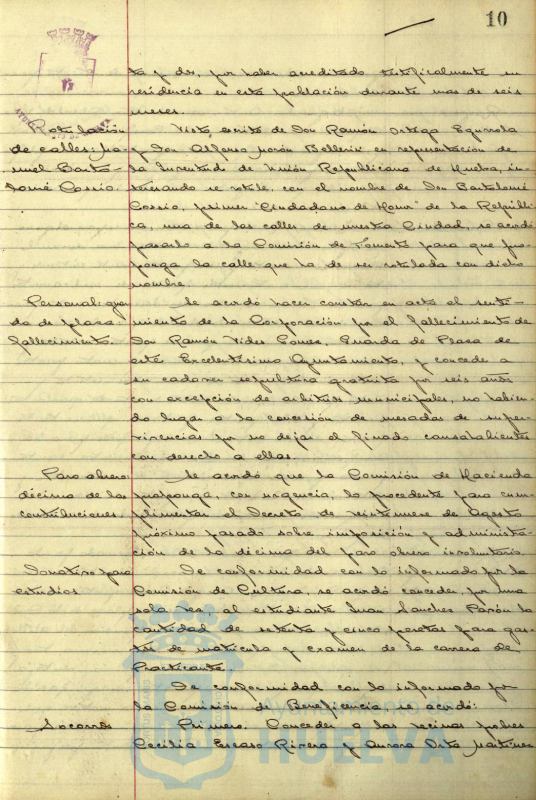 10
ta y dos, por haber acreditado testificalmente su
residencia en esta población durante mas de seis
meses.
Rotulación de calles: Manuel Bartolomé Cossio.
Visto escrito de Don Ramón Ortega
y Don Alfonso Morón en representación de
la Juventud de Unión Republicana de Huelva, in-
teresando se rotule, con el nombre de Don Bartolomé
Cossio, primer "Ciudadano de Honor" de la Repúbli-
ca, una de las calles de nuestra Ciudad, se acordó
pasarlo a la Comisión de Fomento para que pro-
ponga la calle que ha de ser rotulada con dicho
nombre.
Personal: guarda de plaza fallecimiento.
Se acordó hacer constar en acta el senti-
miento de la Corporación por el fallecimiento de
Don Ramón Vides Gomez, Guarda de Plaza de
este Excelentísimo Ayuntamiento, y concede a
su cadaver sepultura gratuita por seis años
con excepción de arbitrios municipales, no habien-
do lugar a la concesión de mesadas de super-
vivencias por no dejar el finado causahabientes
con derecho a ellas.
Paro obrero décima de las contribuciones.
Se acordó que la Comisión de Hacienda
proponga, con urgencia, lo procedente para cum-
plimentar el Decreto de veintinueve de Agosto
próximo pasado sobre imposición y administra-
ción de la décima del paro obrero involuntario.
Donativo para estudios
De conformidad con lo informado por la
Comisión de Cultura, se acordó conceder, por una
sola vez, al estudiante Juan Sanchez Pavón la
cantidad de setenta y cinco pesetas para gas-
tos de matricula y examen de la carrera de
Practicante.
De conformidad con lo informado por
la Comisión de Beneficencia se acordó:
Socorros
Primero. Conceder a las vecinas pobres
Cecilia Rivera y Aurora Orta Martinez
HUELVA